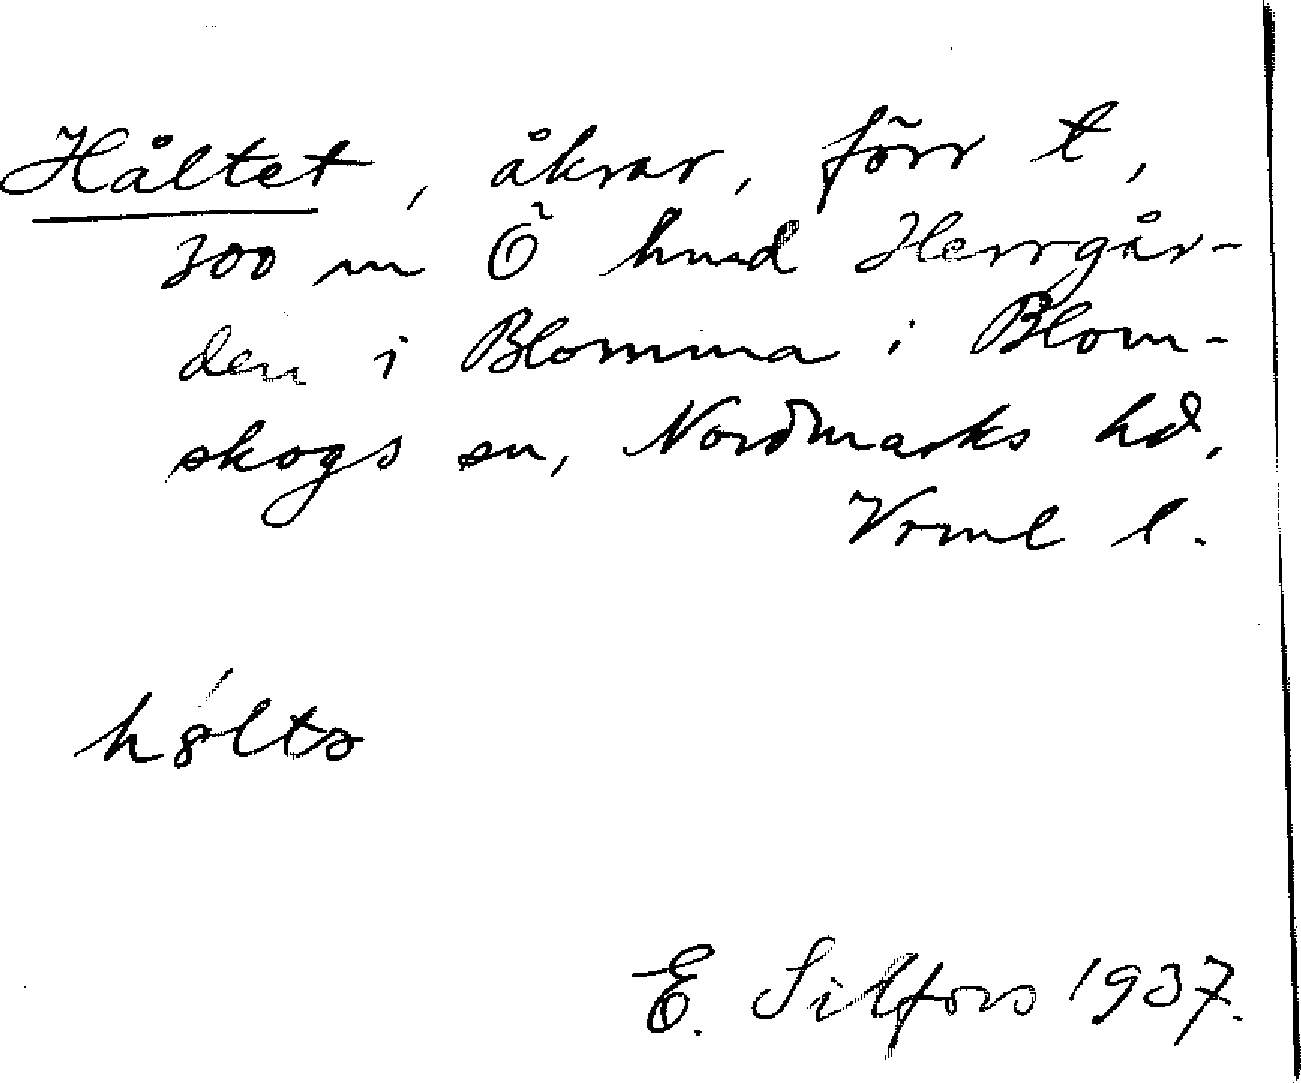 Håltet, åkrar, förr t,
300 m Ö husd Herrgår-
den i Blomma i Blom-
skogs sn, Nordmarks hd,
Vrml l.
E. Silfors 1937.